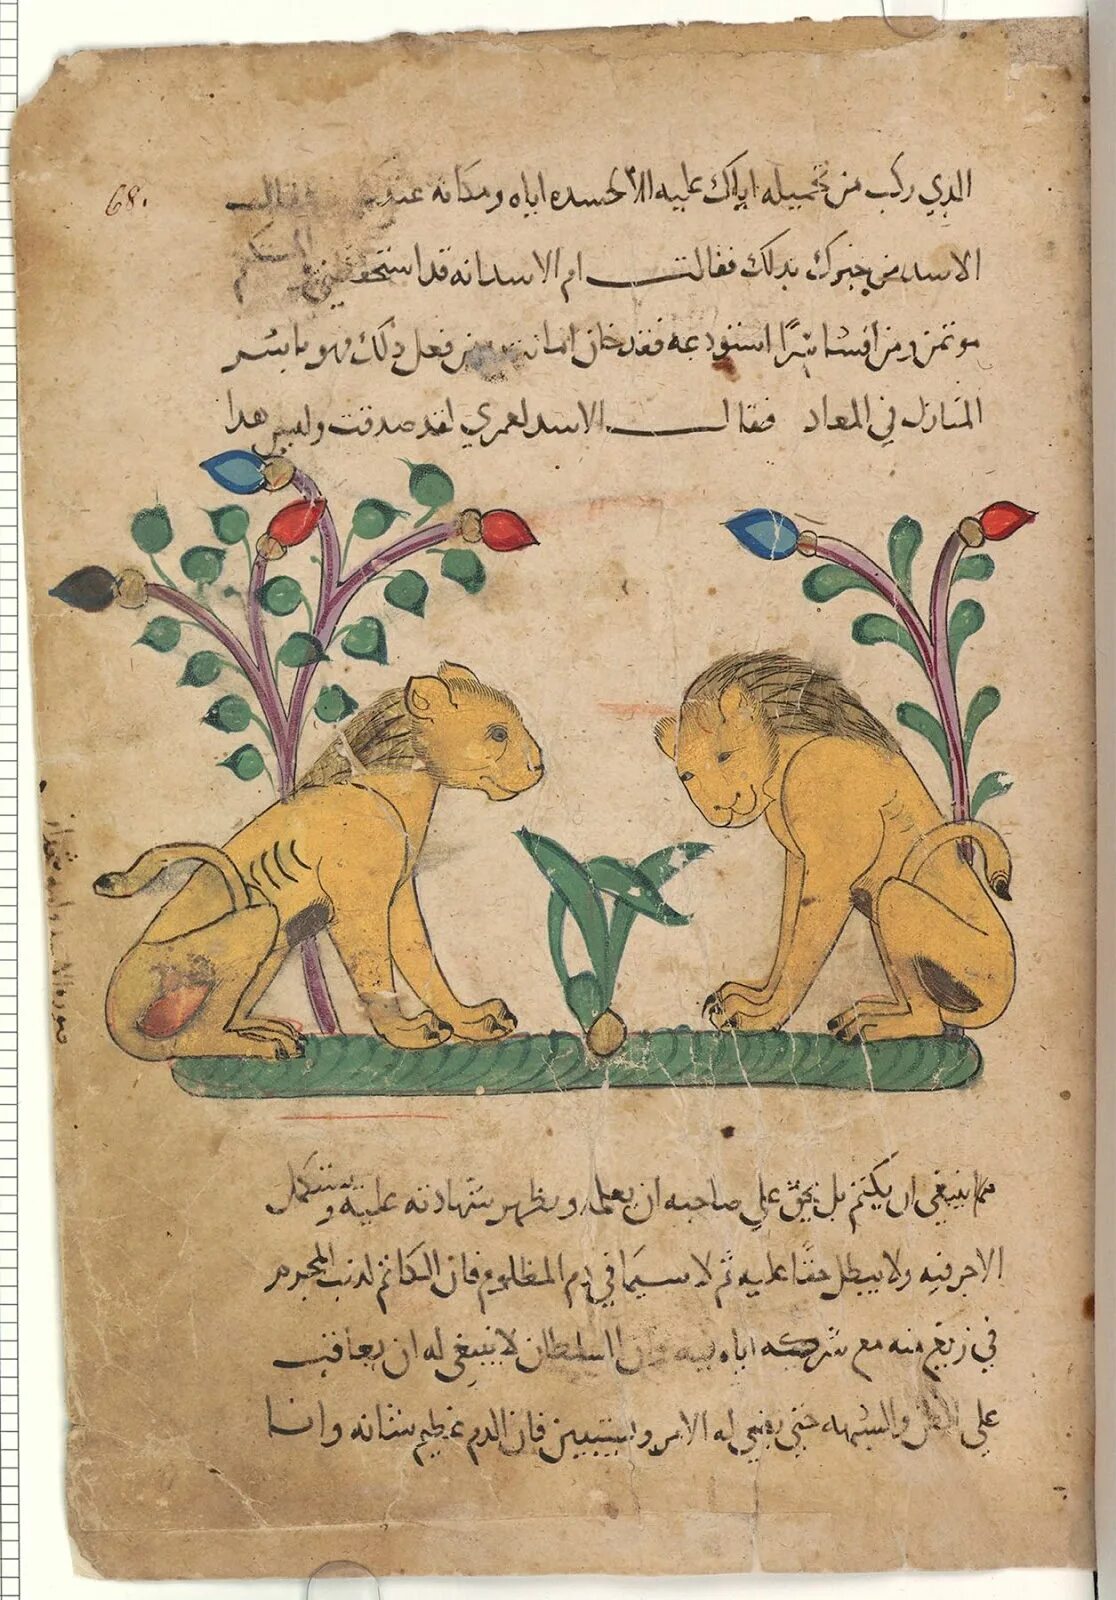 68.
الذي ركب من تحميله اياك عليه الا لحسده اياه ومكانه عندك فقال
الاسد من خبرك بذلك فقالت ام الاسد انه قد استحفظني المستكتم
موتمن ومن افشا سرًّا استودعه فقد خان امانته ومن فعل ذلك فهو بشر
المنازل في المعاد فقال الاسد لعمري لقد صدقت وليس هذا
صورة الاسد وامه
مما ينبغي ان يكتم بل يحق على صاحبه ان يعلمه ويظهر شهادته عليه
الاجر فيه ولا يبطل حقًا عليه ثم لا سيما في دم المظلوم فان الكاتم لذنب المجرم
في منه مع شركته اياه فيه فان السلطان لا ينبغي له ان يعاقب
على الظن والشبهه حتى يضي له الامر ويستبين فان الدم عظيم شانه وانا